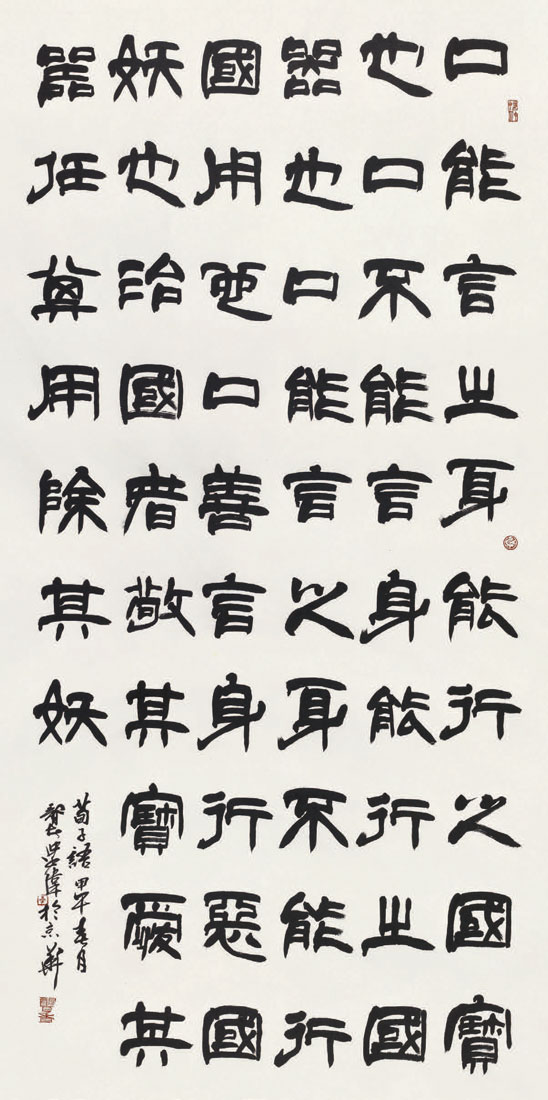 口能言之耳能行之國寶
也口不能言身能行之國
器也口能言之耳不能行
國用也口善言身行惡國
妖也治國者敬其寶愛其
器任尊用除其妖
荀子語 甲午春月
於京華